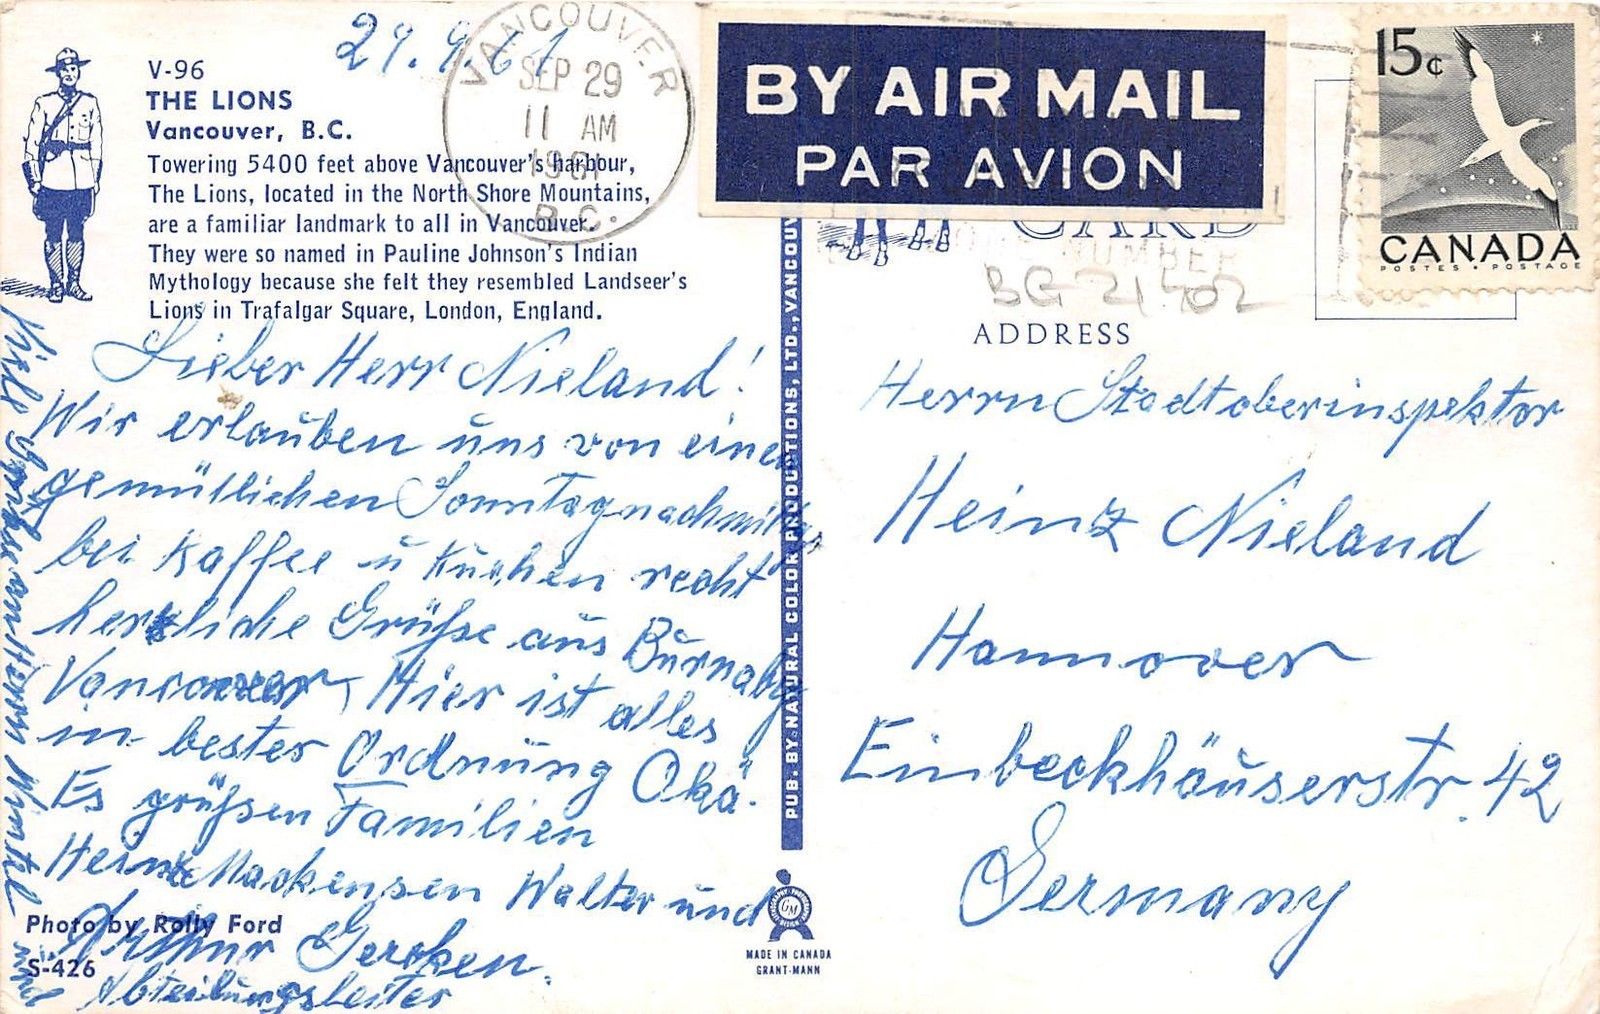 29.9.61
VANCOUVER
SEP 29
11 AM
1961
B.C.
V-96
THE LIONS
Vancouver, B.C.
Towering 5400 feet above Vancouver's harbour,
The Lions, located in the North Shore Mountains,
are a familiar landmark to all in Vancouver.
They were so named in Pauline Johnson's Indian
Mythology because she felt they resembled Landseer's
Lions in Trafalgar Square, London, England.
Lieber Herr Nieland!
Wir erlauben uns von einem
gemütlichen Sonntagnachmittag
bei Kaffee u Kuchen recht
herzliche Grüße aus Burnaby
Vancouver, Hier ist alles
in bester Ordnung Oka.
Es grüßen Familien
Heinz Mackensen Walter und
Arthur Gercken.
Viele Grüße an Herrn
und
Abteilungsleiter
Photo by Rolly Ford
S-426
PUB. BY NATURAL COLOR PRODUCTIONS, LTD., VANCOUV
GM
MADE IN CANADA
GRANT-MANN
BY AIR MAIL
PAR AVION
CARD
NUMBER
BG 21402
15c
CANADA
POSTES · POSTAGE
ADDRESS
Herrn Stadtoberinspektor
Heinz Nieland
Hannover
Einbeckhäuserstr. 42
Germany